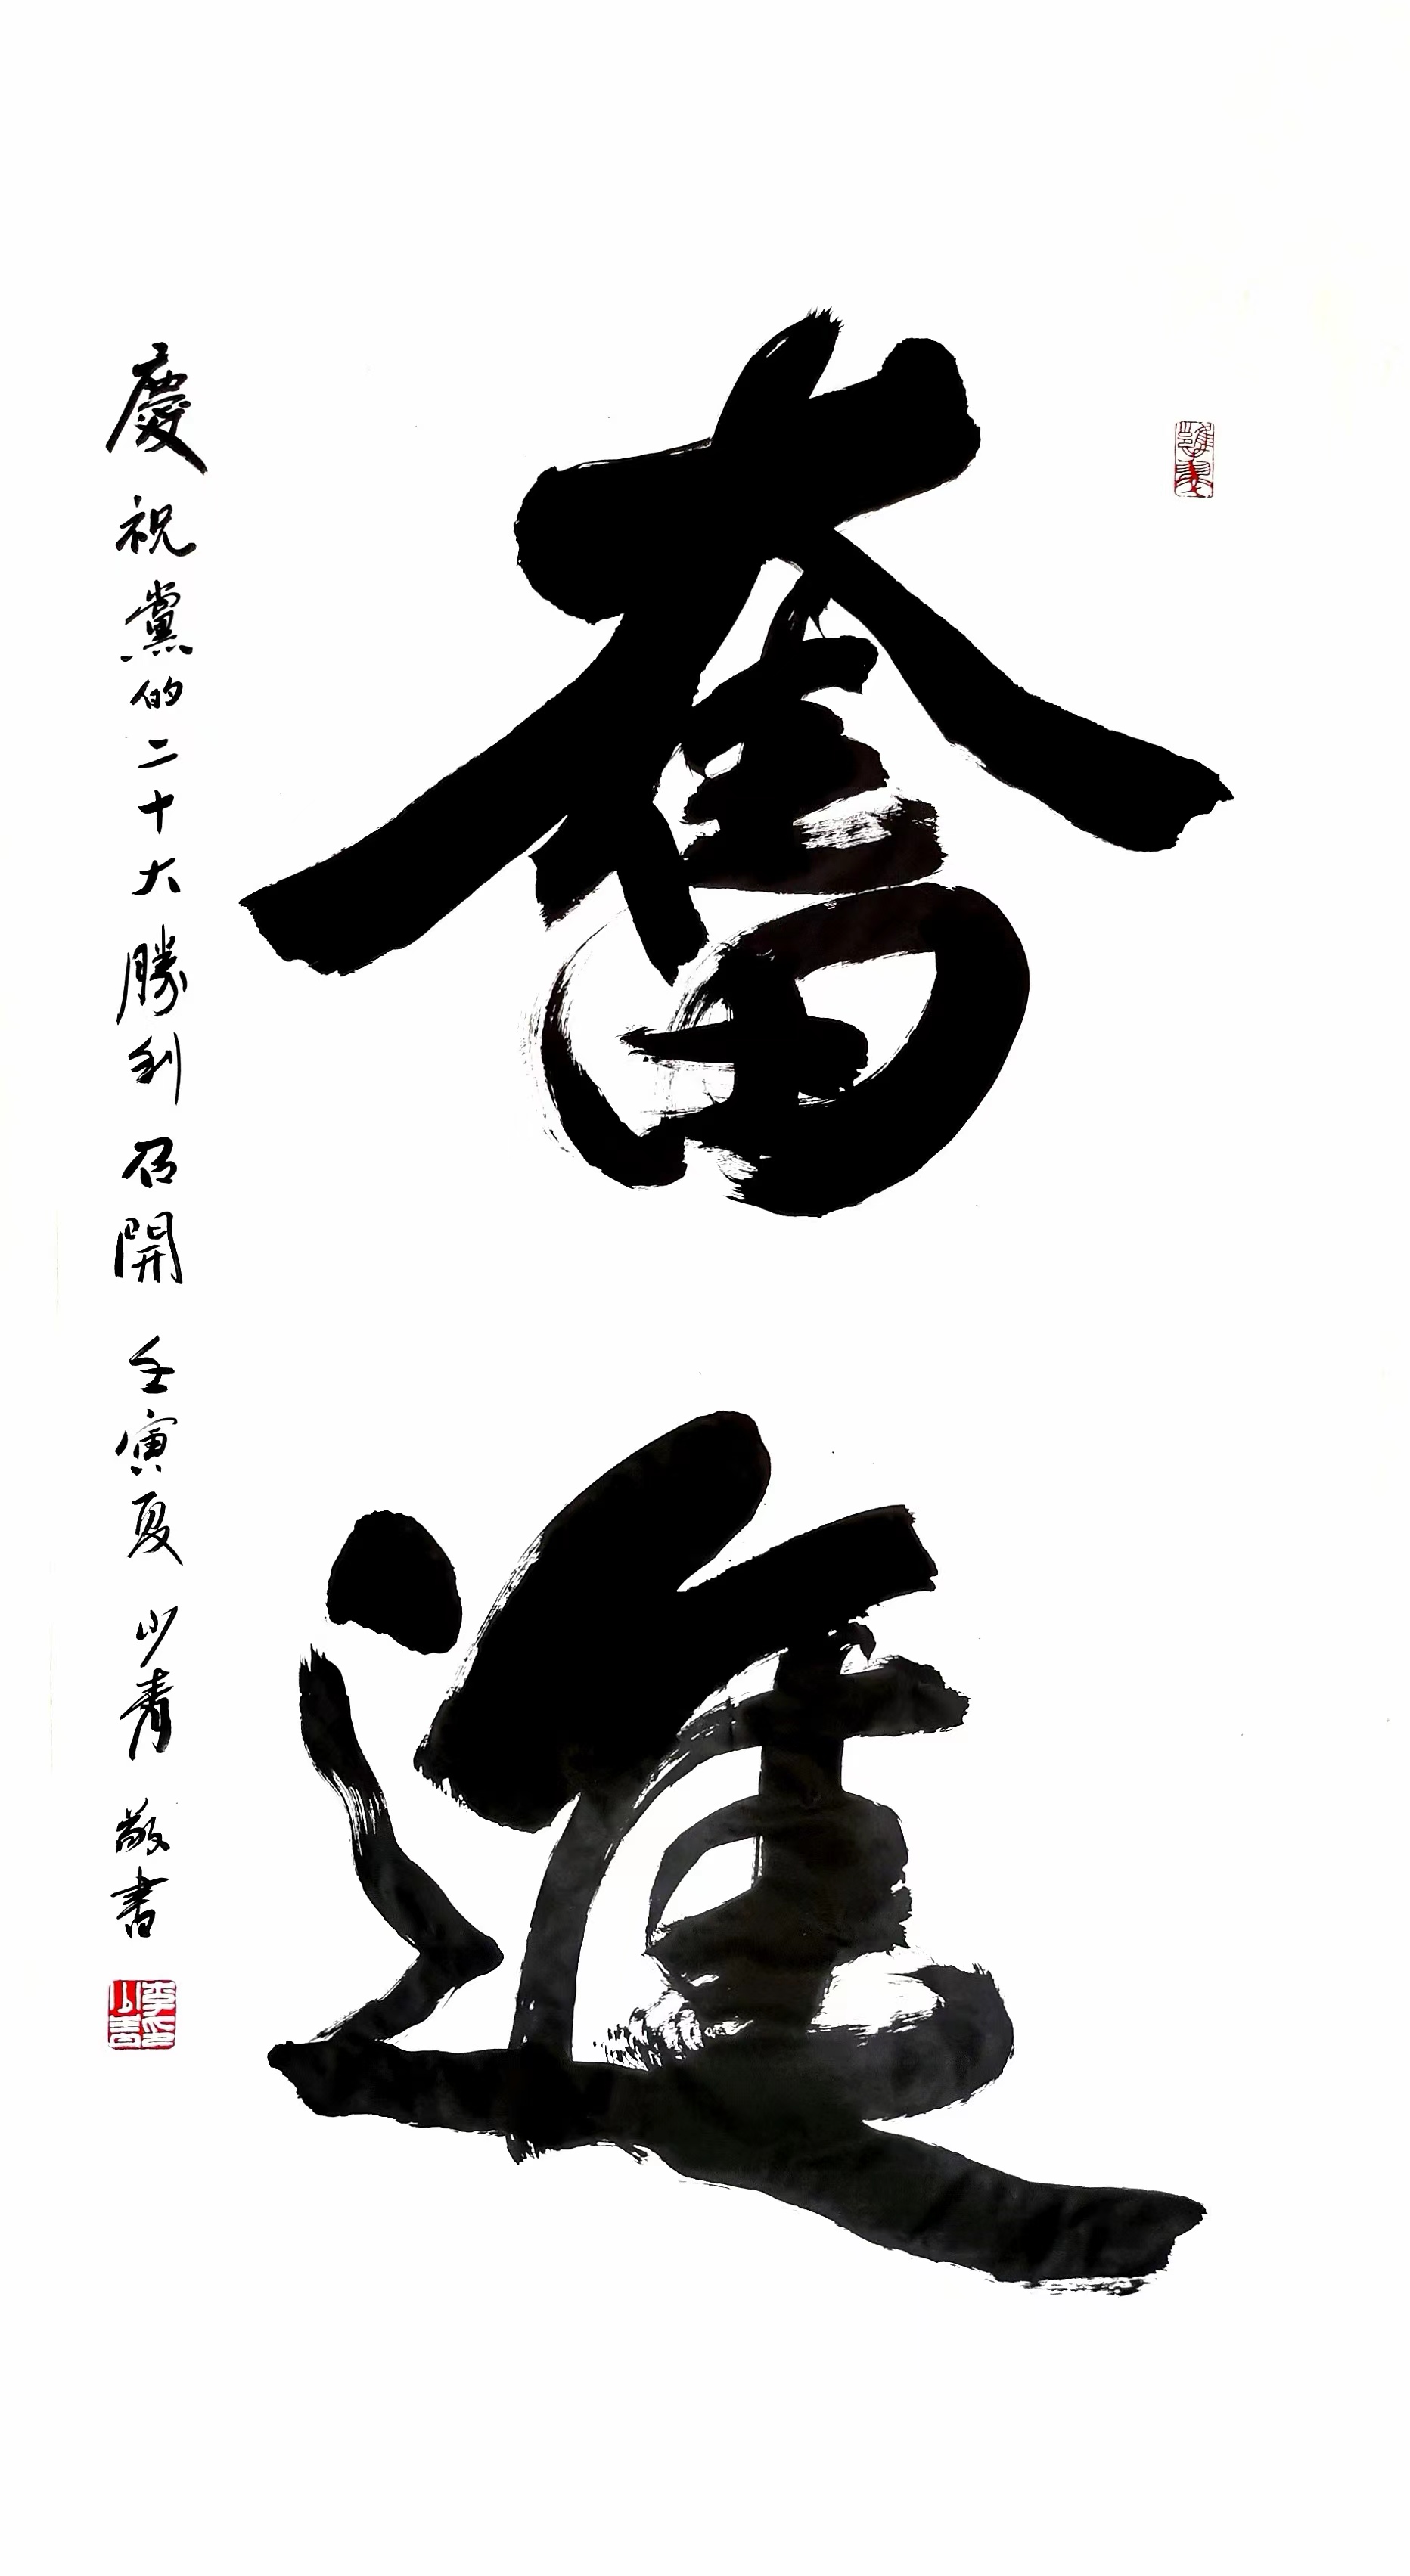 奮進
慶祝黨的二十大勝利召開 壬寅夏 少青 敬書